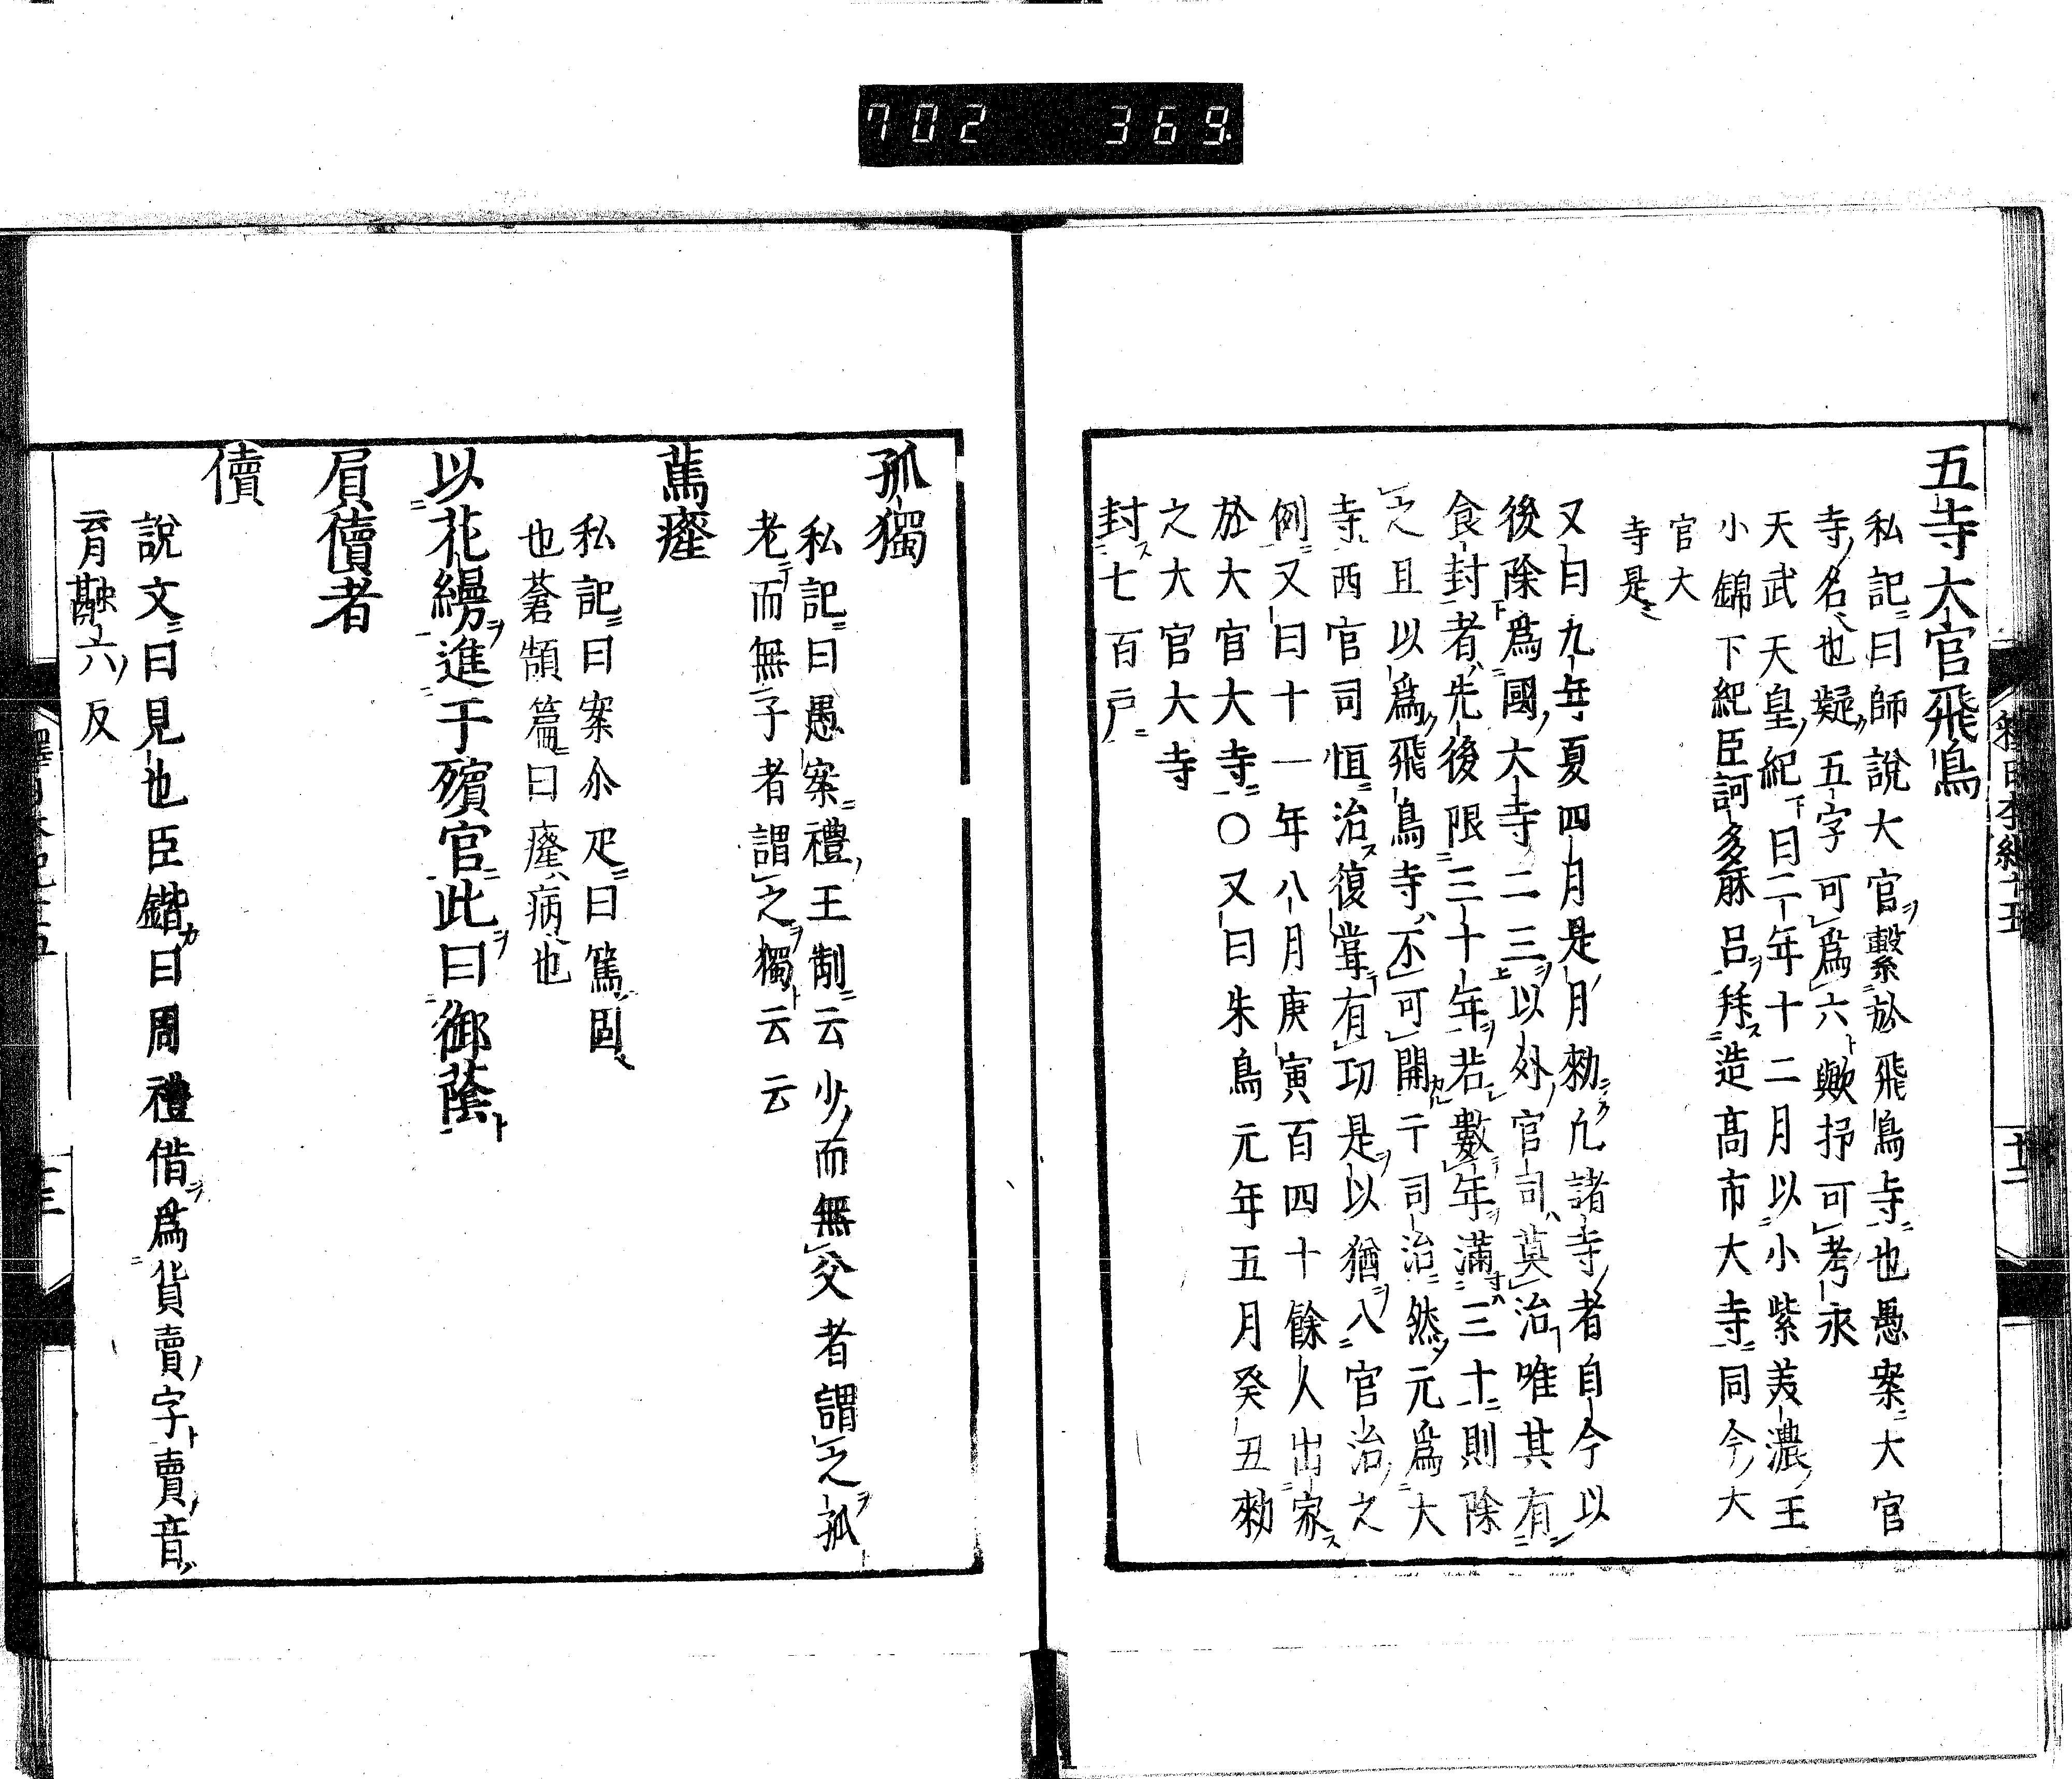 702 369
五寺大官飛鳥
私記曰師說大官繫於飛鳥寺也愚案大官
寺名也疑五字可爲六歟抑可考永
天武天皇紀下曰二年十二月以小紫美濃王
小錦下紀臣訶多麻呂拜造髙市大寺同今大
官大
寺是
又曰九年夏四月是月勑凢諸寺者自今以
後除爲國大寺二三以外官司莫治唯其有
食封者先後限三十年若數年滿三十則除
之且以爲飛鳥寺不可開于司治然元爲大
寺西官司恒治復嘗有功是以猶入官治之
例又曰十一年八月庚寅百四十餘人出家
於大官大寺〇又曰朱鳥元年五月癸丑勑
之大官大寺
封七百戸
孤獨
私記曰愚案禮王制云少而無父者謂之孤
老而無子者謂之獨云云
篤癃
私記曰案尒疋曰篤固
也蒼頡篇曰癃病也
以花縵進于殯官此曰御蔭
肩儥者
儥
說文曰見也臣鍇曰周禮借爲貨賣字賣音
育融六反
十二